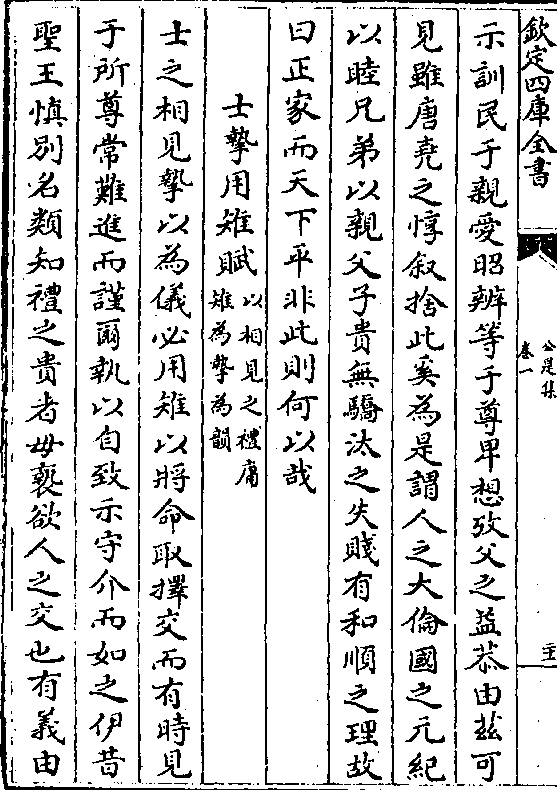 欽定四庫全書
公是集
卷一
示訓民于親愛昭辨等于尊卑想攷父之益恭由茲可
見雖唐堯之惇叙捨此奚為是謂人之大倫國之元紀
以睦兄弟以親父子貴無驕汰之失賤有和順之理故
曰正家而天下平非此則何以哉
士摯用雉賦
以相見之禮庸
雉為摯為韻
士之相見摯以為儀必用雉以將命取擇交而有時見
于所尊常難進而謹爾執以自致示守介而如之伊昔
聖王慎別名類知禮之貴者毋褻欲人之交也有義由